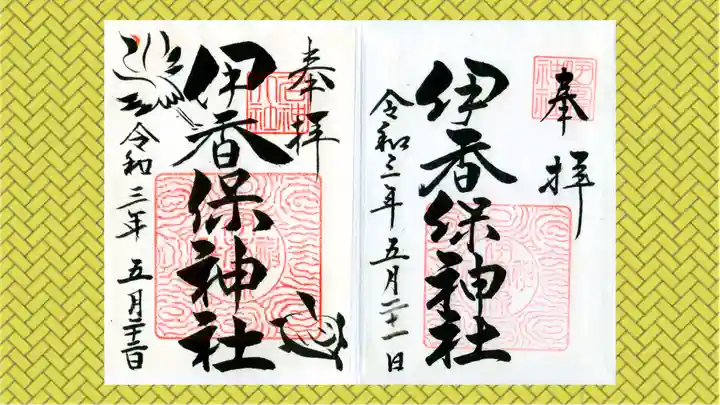 奉拝
伊香保神社
令和三年 五月二十一日
奉拝
伊香保神社
令和三年 五月二十二日